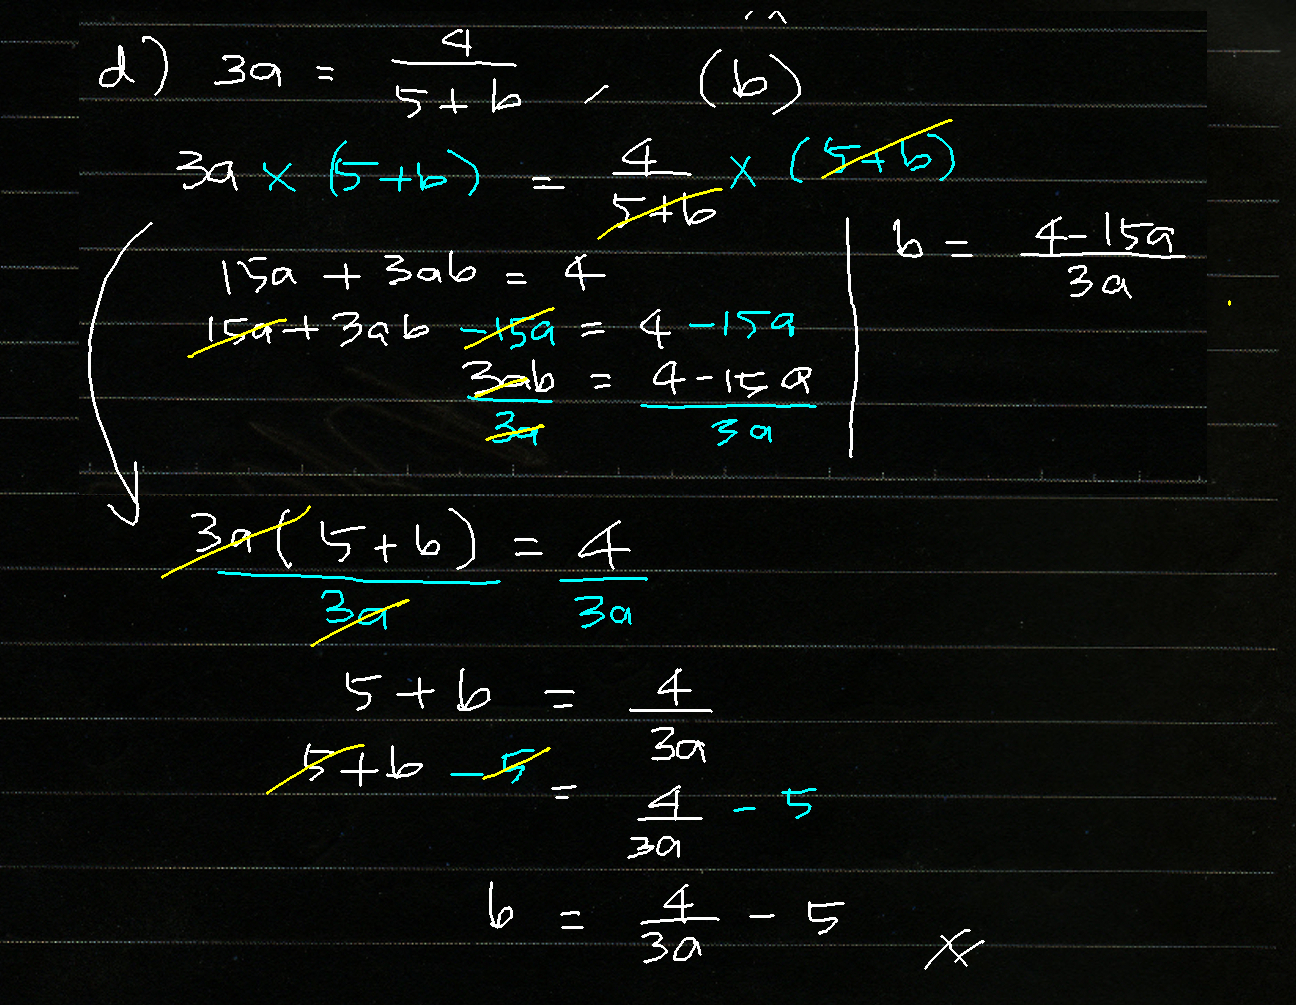 d) 3a = 4/(5+b) , (b)
3a × (5+b) = 4/(5+b) × (5+b)
15a + 3ab = 4
15a + 3ab -15a = 4 -15a
3ab/3a = (4-15a)/3a
b = (4-15a)/3a
3a(5+b)/3a = 4/3a
5+b = 4/3a
5+b -5 = 4/3a - 5
b = 4/3a - 5